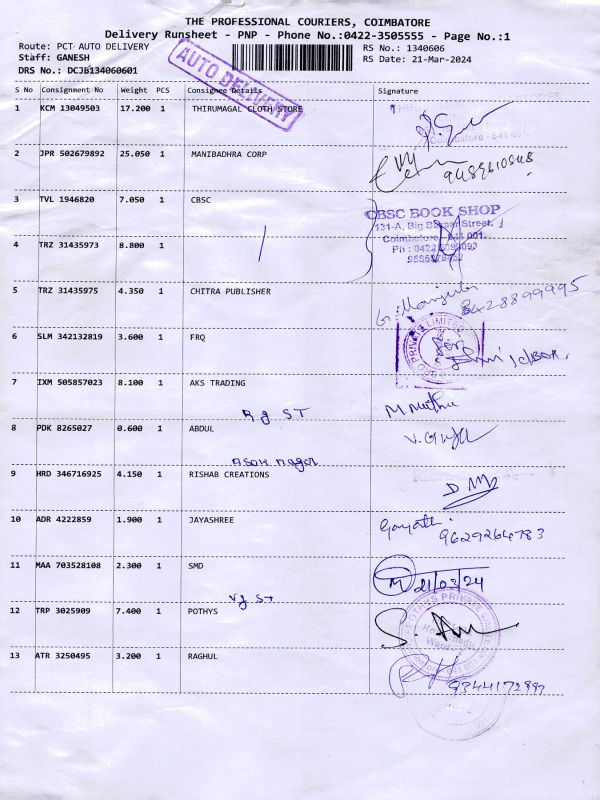 THE PROFESSIONAL COURIERS, COIMBATORE
Delivery Runsheet - PNP - Phone No.:0422-3505555 - Page No.:1
Route: PCT AUTO DELIVERY
RS No.: 1340606
Staff: GANESH
RS Date: 21-Mar-2024
DRS No.: DCJB134060601
AUTO DELIVERY
S No Consignment No Weight PCS Consignee Details Signature
1 KCM 13049503 17.200 1 THIRUMAGAL CLOTH STORE
Coimbatore - 641 001.
2 JPR 502679892 25.050 1 MANIBADHRA CORP
3 TVL 1946820 7.050 1 CBSC
CBSC BOOK SHOP
131-A, Big Bazaar Street,
Coimbatore - 641 001.
Ph : 0422
4 TRZ 31435973 8.800 1
5 TRZ 31435975 4.350 1 CHITRA PUBLISHER
G. Manjula
8428899995
6 SLM 342132819 3.600 1 FRQ
PRIVATE LIMITED
7 IXM 505857023 8.100 1 AKS TRADING
M. Muthu
R g ST
8 PDK 8265027 0.600 1 ABDUL
Asok nagar
9 HRD 346716925 4.150 1 RISHAB CREATIONS
10 ADR 4222859 1.900 1 JAYASHREE
Gayathri
9629264783
11 MAA 703528108 2.300 1 SMD
21/03/24
V g ST
12 TRP 3025909 7.400 1 POTHYS
POTHYS PRIVATE
13 ATR 3250495 3.200 1 RAGHUL